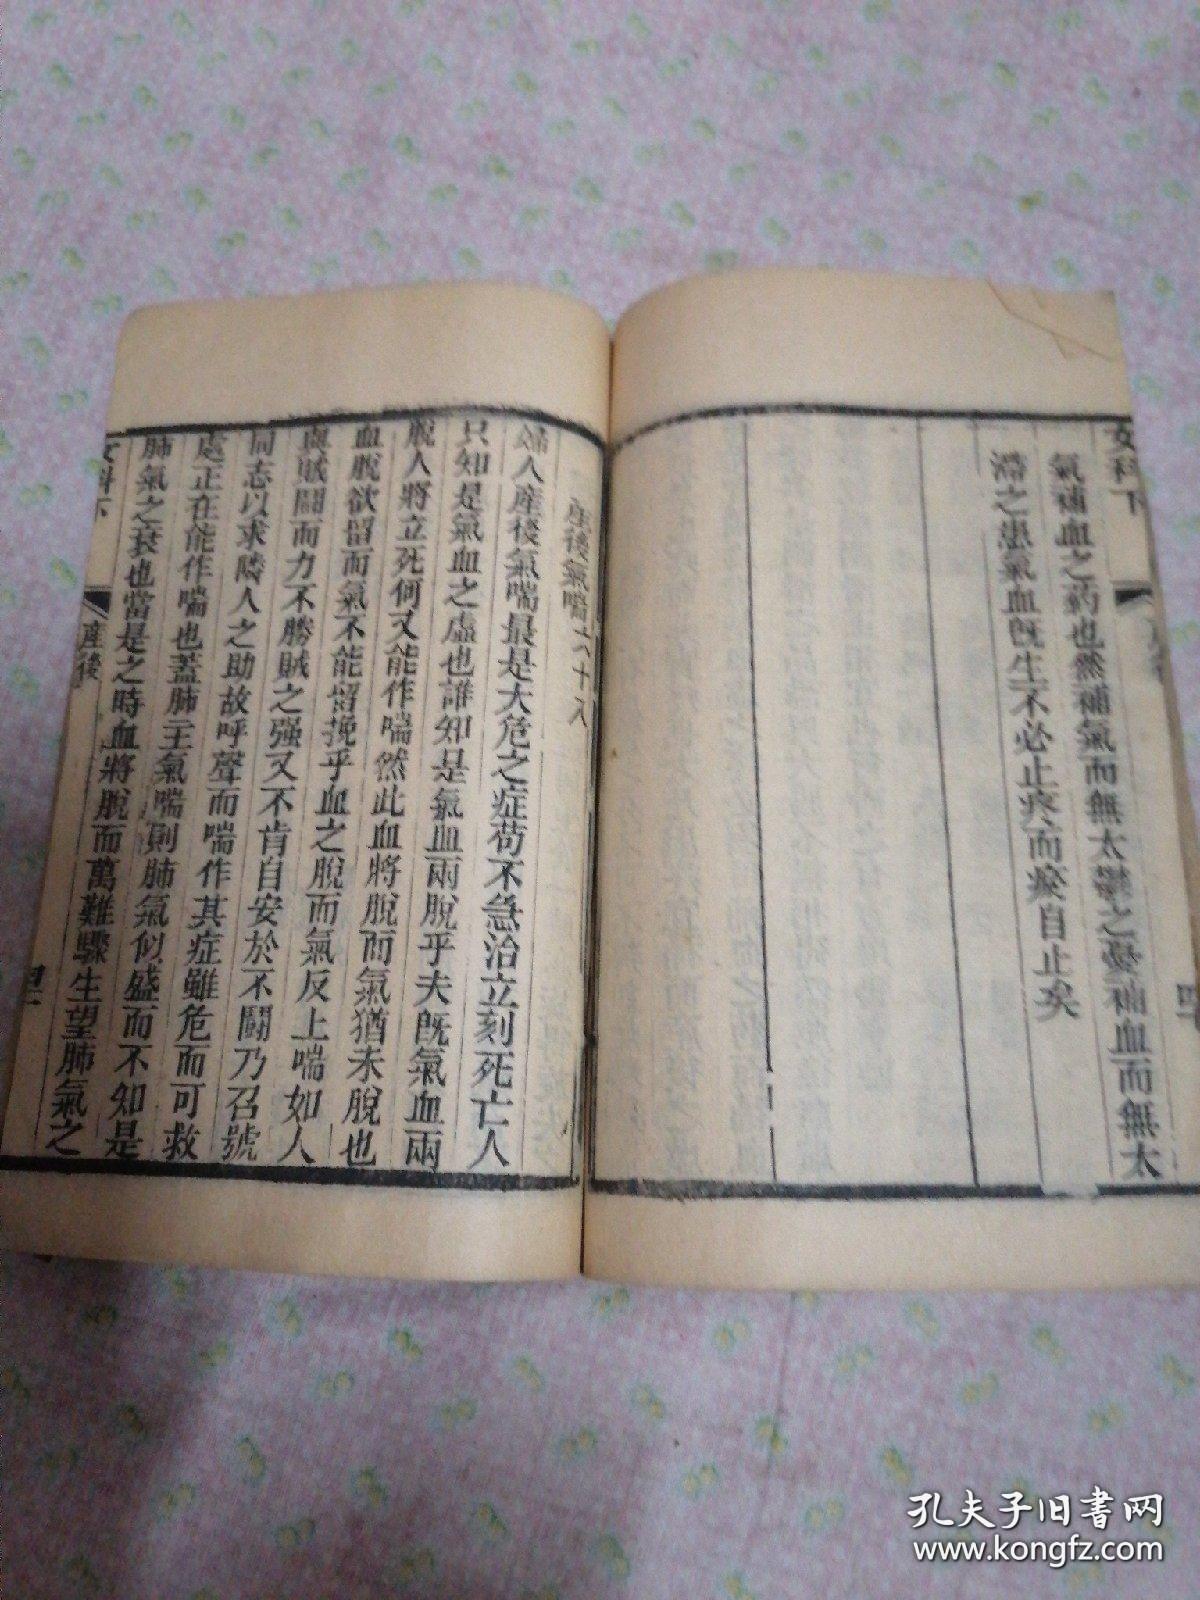 女科下
四十
氣補血之葯也然補氣而無太鬱之憂補血而無太
滯之患氣血旣生不必止疼而疼自止矣
產後氣喘六十八
婦人產後氣喘最是大危之症苟不急治立刻死亡人
只知是氣血之虛也誰知是氣血兩脫乎夫旣氣血兩
脫人將立死何又能作喘然此血將脫而氣猶未脫也
血脫欲留而氣不能留挽乎血之脫而氣反上喘如人
與賊鬪而力不勝賊之强又不肯自安於不鬪乃召號
同志以求隣人之助故呼聲而喘作其症雖危而可救
處正在能作喘也蓋肺主氣喘則肺氣似盛而不知是
肺氣之衰也當是之時血將脫而萬難驟生望肺氣之
女科下
產後
孔夫子旧书网
www.kongfz.com